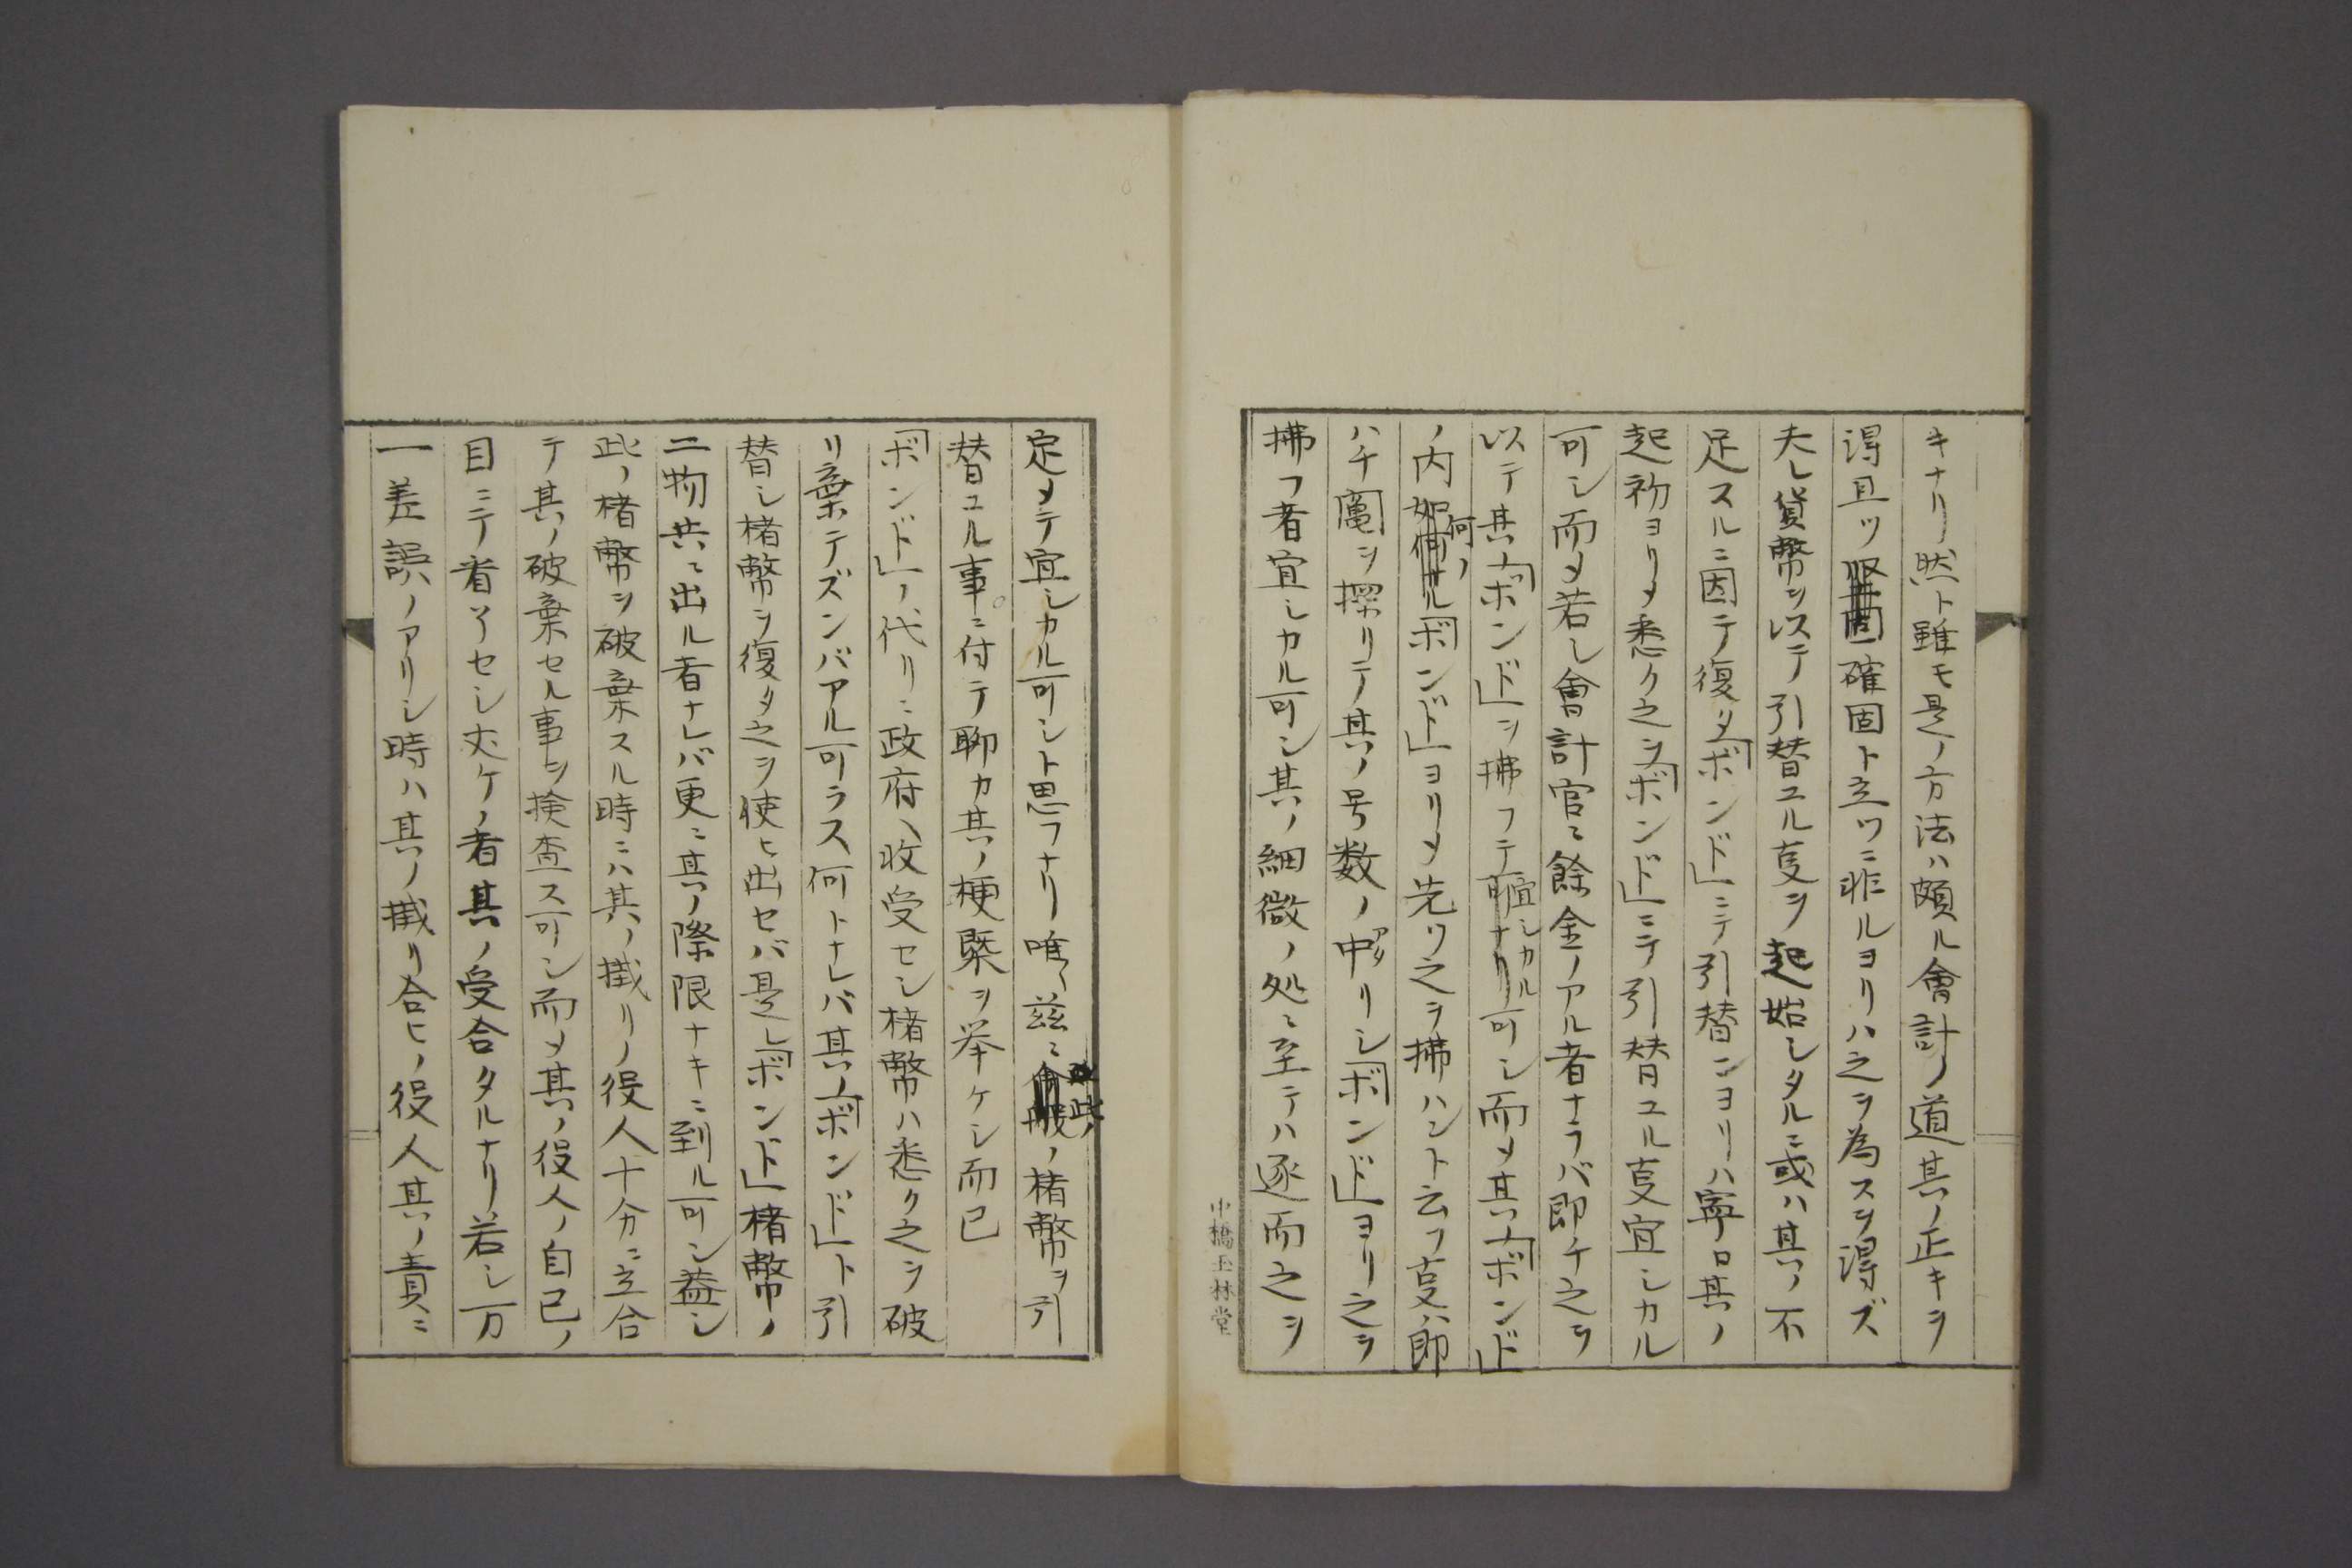 キナリ然ト雖モ是ノ方法ハ頗ル會計ノ道其ノ正キヲ
得且ツ堅固確固ト立ツニ非ルヨリハ之ヲ為スヲ得ズ
夫レ貨幣ヲ以テ引替ユル㕝ヲ起始シタルニ或ハ其ノ不
足スルニ因テ復タ「ボンド」ニテ引替ンヨリハ寧ロ其ノ
起初ヨリメ悉ク之ヲ「ボンド」ニテ引替ユル㕝宜シカル
可シ而メ若シ會計官ニ餘金ノアル者ナラバ即チ之ヲ
以テ其ノ「ボンド」ヲ拂フテ宜シカル可シ而メ其ノ「ボンド」
ノ内何ノ「ボンド」ヨリメ先ツ之ヲ拂ハント云フ㕝ハ即
ハチ鬮ヲ探リテ其ノ号数ノ中アタリシ「ボンド」ヨリ之ヲ
拂フ者宜シカル可シ其ノ細微ノ処ニ至テハ逐而之ヲ
中橋玉林堂
定メテ宜シカル可シト思フナリ唯ヽ茲ニ此ノ楮幣ヲ引
替ユル事ニ付テ聊カ其ノ梗槩ヲ挙ケシ而已
「ボンド」ノ代リニ政府ヘ收受セシ楮幣ハ悉ク之ヲ破
リ棄テズンバアル可ラス何トナレバ其ノ「ボンド」ト引
替シ楮幣ヲ復タ之ヲ使ヒ出セバ是レ「ボンド」楮幣ノ
二物共ニ出ル者ナレバ更ニ其ノ際限ナキニ到ル可シ蓋シ
此ノ楮幣ヲ破棄スル時ニハ其ノ掛リノ役人十分ニ立合
テ其ノ破棄セル事ヲ検査ス可シ而メ其ノ役人ノ自己ノ
目ニテ看ソセシ丈ケノ者其ノ受合タルナリ若シ万
一差誤ノアリシ時ハ其ノ掛リ合ヒノ役人其ノ責ニ